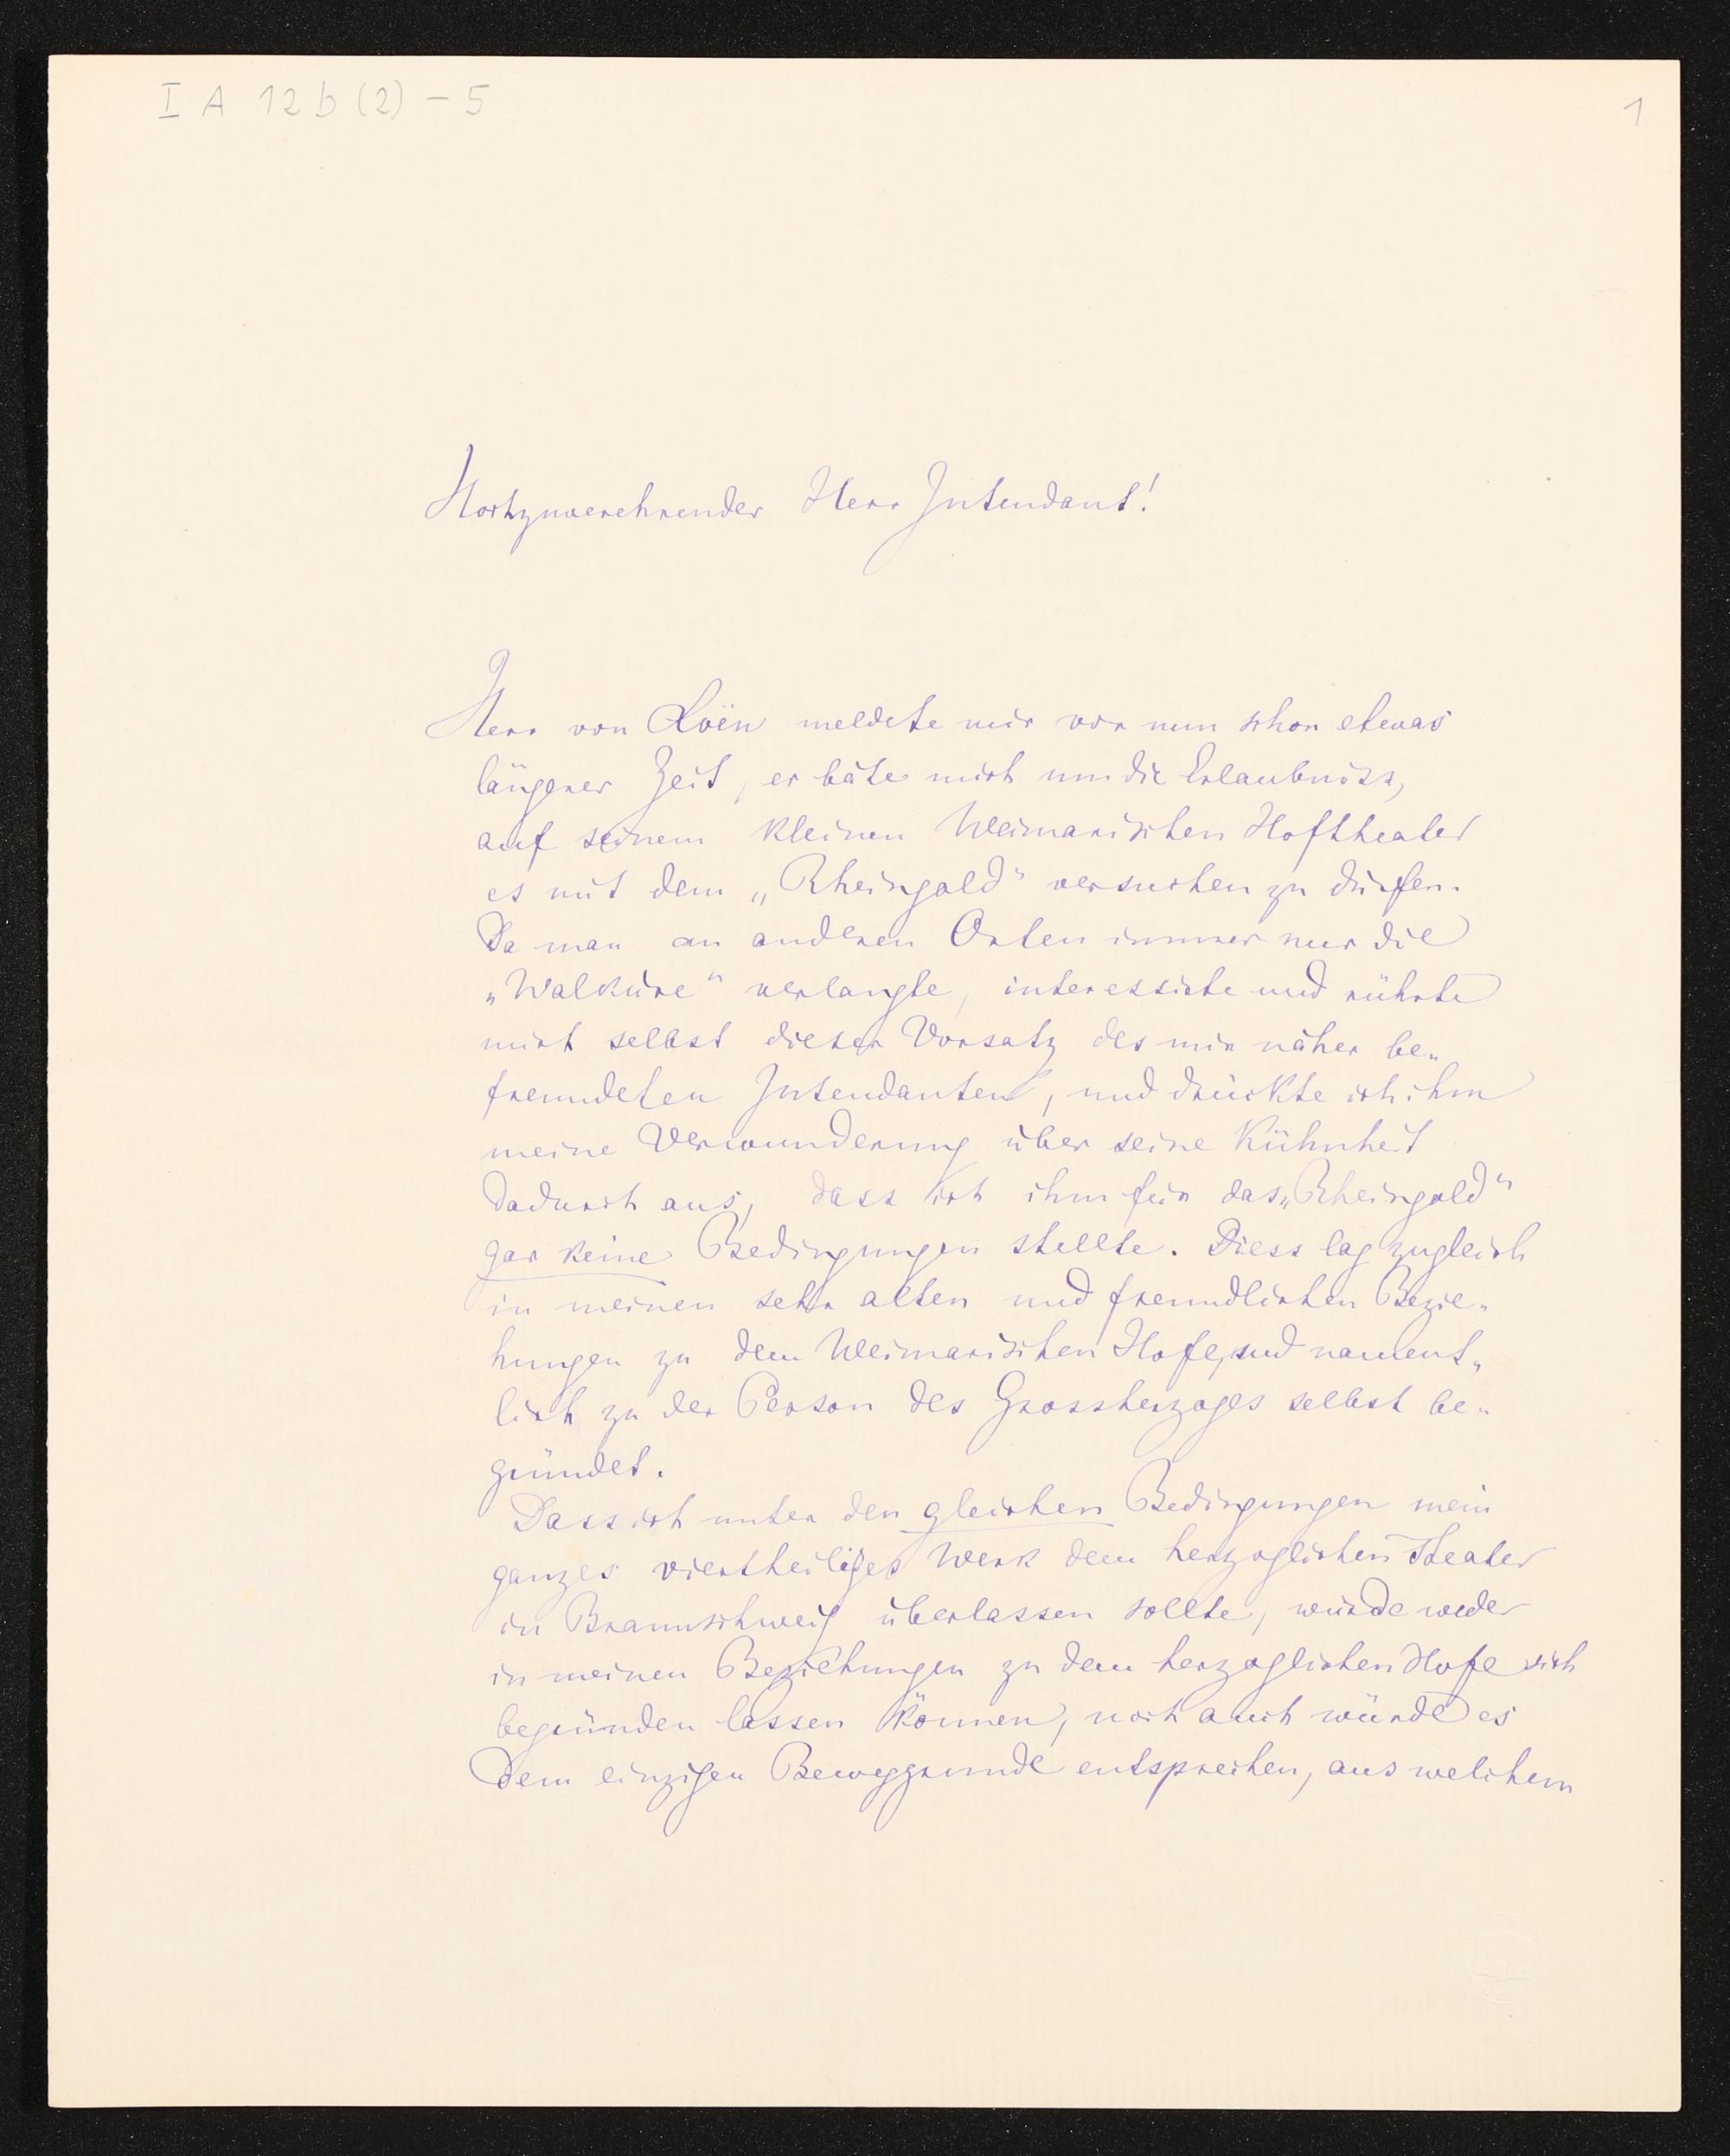 I A 12 b (2) – 5
1
Hochzuverehrender Herr Intendant!
Herr von Loën meldete mir vor nun schon etwas
längerer Zeit, er bäte mich um die Erlaubniss,
auf seinem kleinen Weimarischen Hoftheater
es mit dem „Rheingold" versuchen zu dürfen.
Da man an anderen Orten immer nur die
„Walküre" verlangte, interessirte und rührte
mich selbst dieser Vorsatz des mir näher be„
freundeten Intendanten, und drückte ich ihm
meine Verwunderung über seine Kühnheit
dadurch aus, dass ich ihm für das „Rheingold"
gar keine Bedingungen stellte. Diess lag zugleich
in meinen sehr alten und freundlichen Bezie„
hungen zu dem Weimarischen Hofe, und nament„
lich zu der Person des Grossherzoges selbst be„
gründet.
Dass ich unter den gleichen Bedingungen mein
ganzes viertheiliges Werk dem herzoglichen Theater
in Braunschweig überlassen sollte, würde weder
in meinen Beziehungen zu dem herzoglichen Hofe sich
begründen lassen können, noch auch würde es
dem einzigen Beweggrunde entsprechen, aus welchem